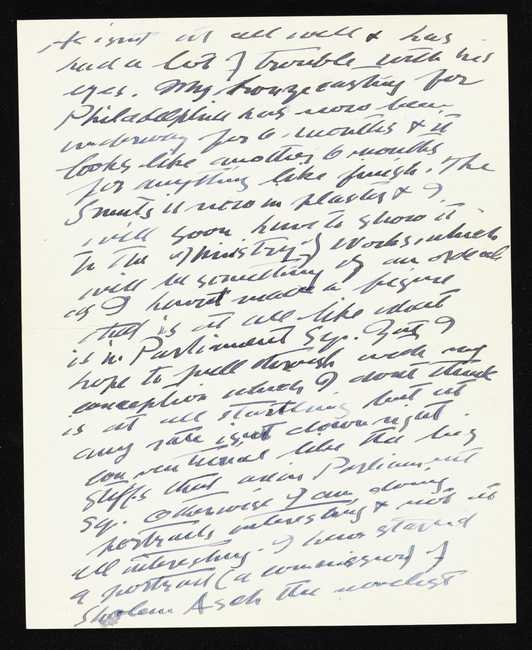 He isnt at all well & has
had a lot of trouble with his
eyes. My bronze casting for
Philadelphia has now been
underway for 6 months & it
looks like another 6 months
for anything like finish. The
Smuts is now in plaster & I
will soon have to show it
to the Ministry of Works, which
will be something of an ordeal
as I havnt made a figure
that is at all like what
is in Parliament Sq. But I
hope to pull through with my
conception which I dont think
is at all startling but at
any rate isnt downright
conventional like the big
stiffs that are in Parliament
Sq. Otherwise I am doing
portraits interesting & not at
all interesting. I have started
a portrait (a commission) of
Sholem Asch the novelist